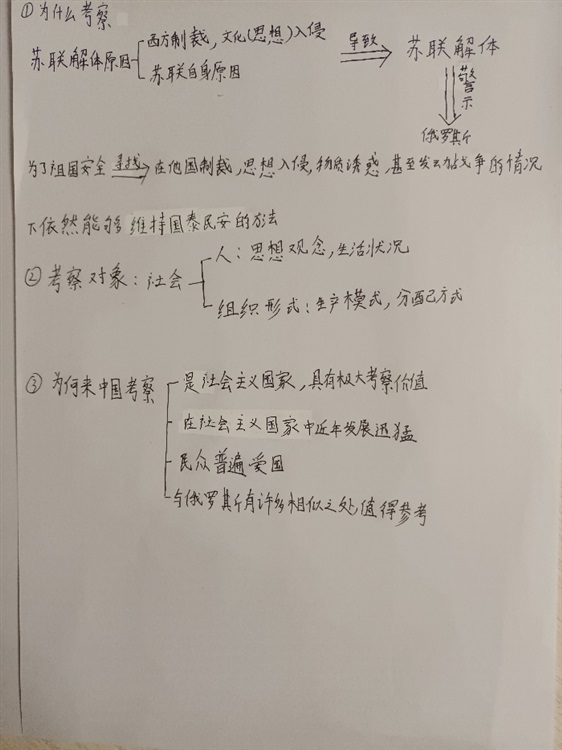 ①为什么考察
西方制裁,文化(思想)入侵
苏联解体原因
苏联自身原因
导致
苏联解体
警示
俄罗斯
为了祖国安全 寻找 在他国制裁,思想入侵,物质诱惑,甚至发动战争的情况
下依然能够维持国泰民安的方法
②考察对象:社会
人:思想观念,生活状况
组织形式:生产模式,分配方式
③为何来中国考察
是社会主义国家,具有极大考察价值
在社会主义国家中近年发展迅猛
民众普遍爱国
与俄罗斯有许多相似之处,值得参考